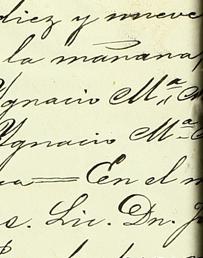 diez y nueve
la mañana,
Ygnacio M.ª
Ygnacio M.ª
En el
s. Lic. Dn. J